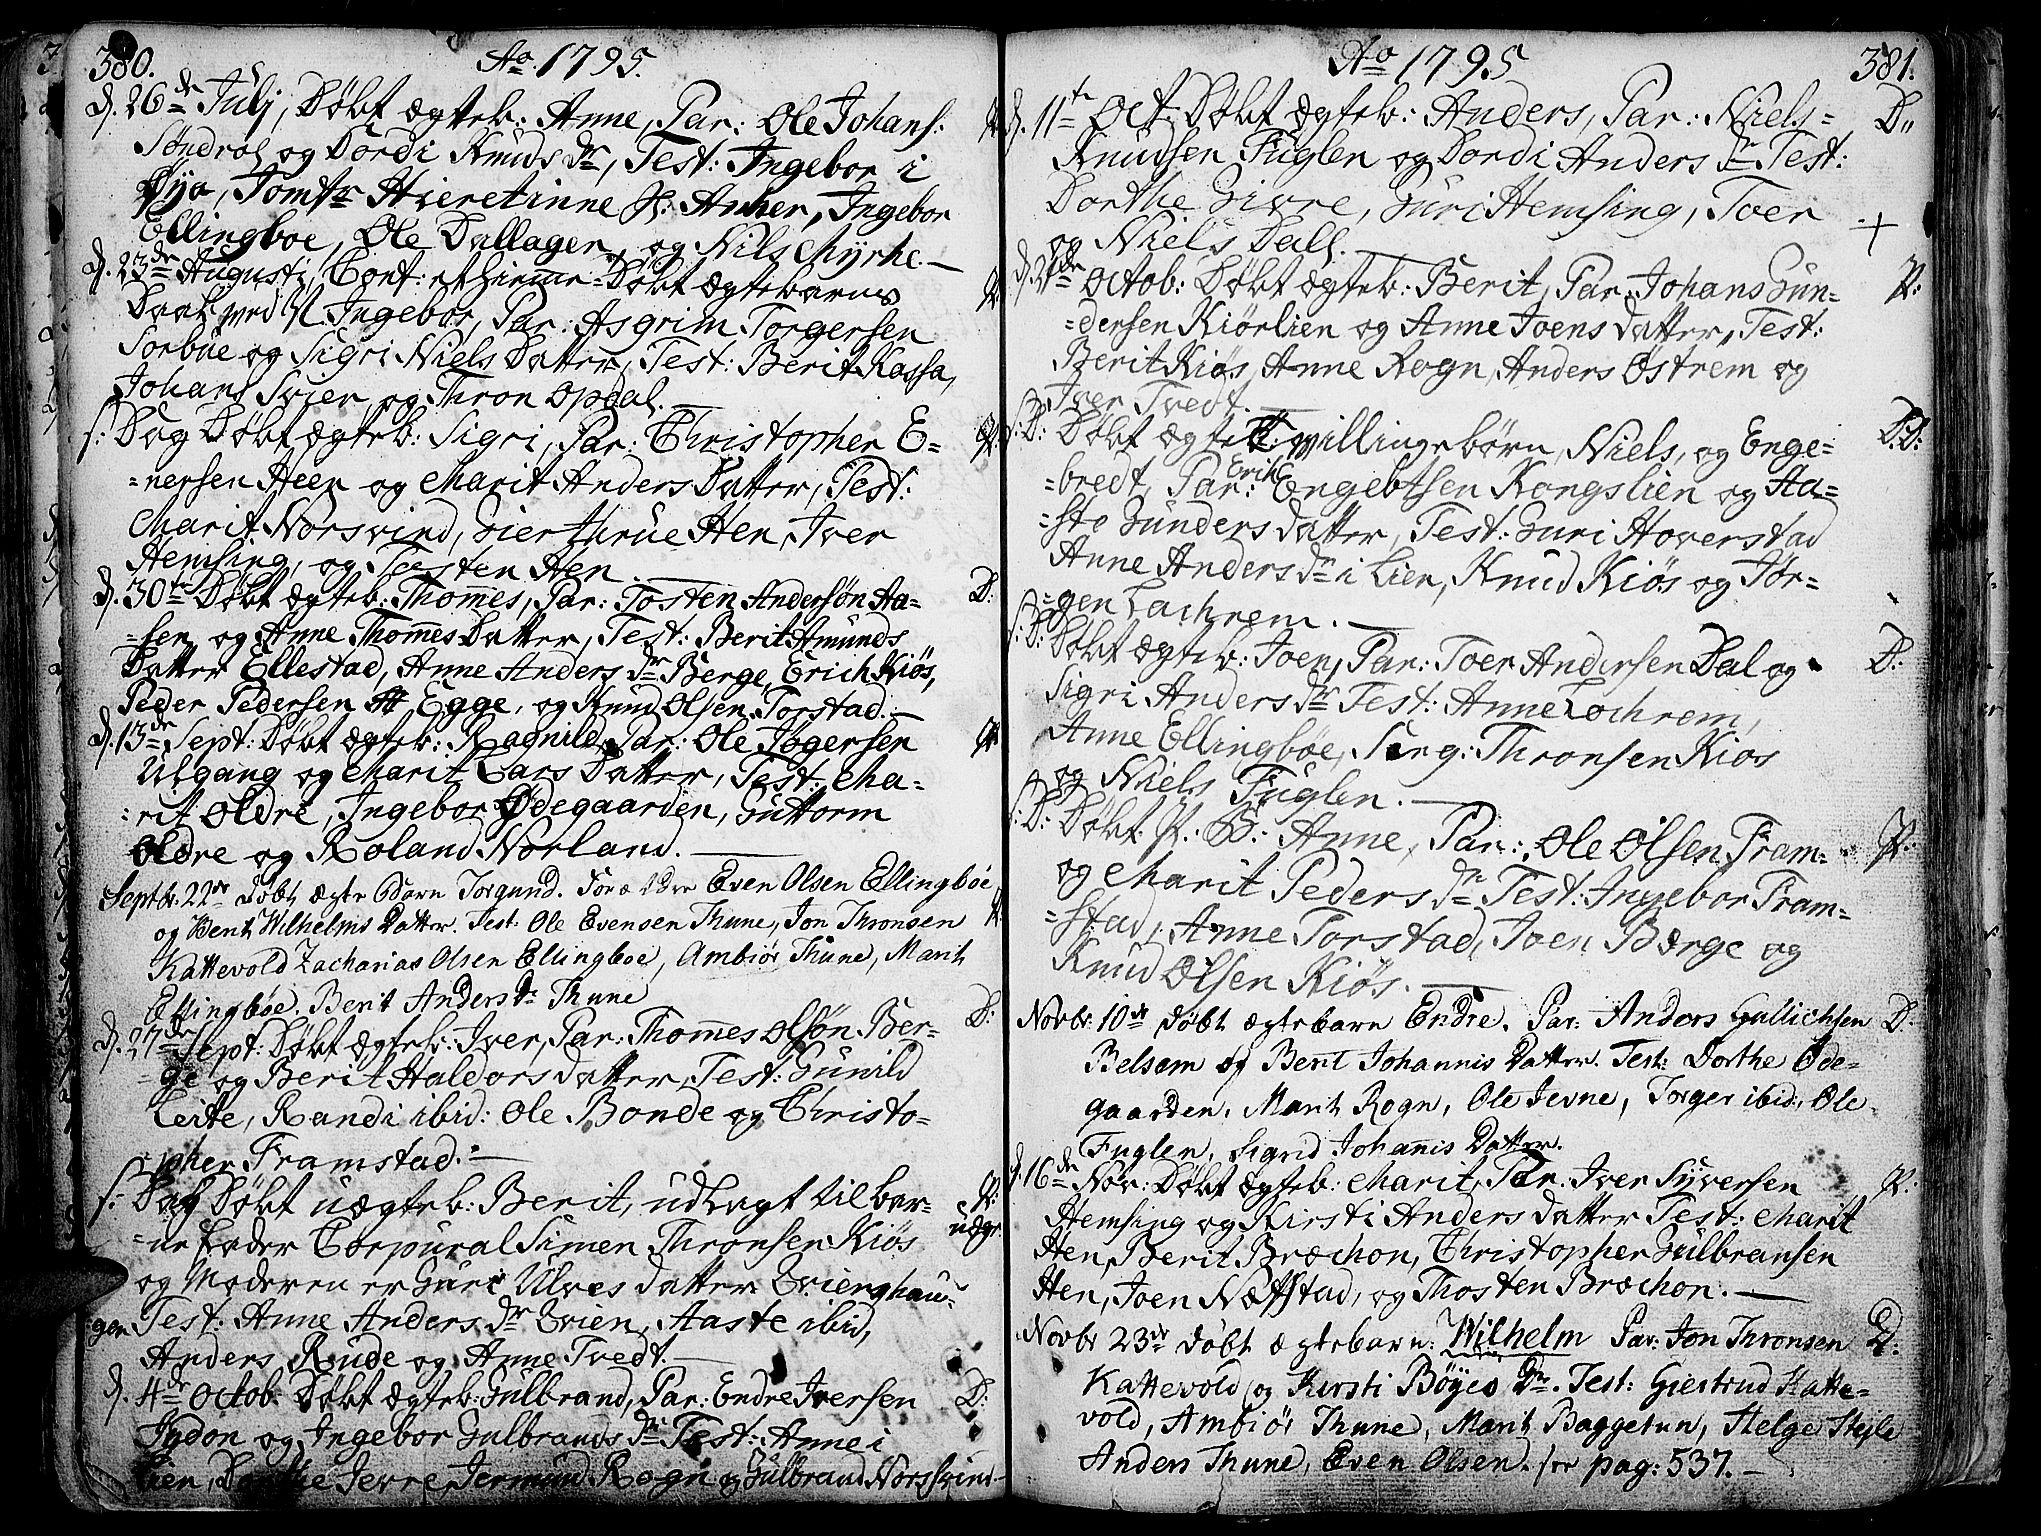 380. Ao. 1795.
d. 26de Julj, Døbt ægteb: Anne, Par: Ole Johans:
Søndrol og Dordi Knuds dr, Test: Ingebor i
Øya, Jomfr Hieretinne H: Anher, Ingebor
Ellingboe, Ole Dallager, og Nils Myrhe.—
d. 23de Augusti, Conf: et hiemme-Døbt Ægtebarns
Daab ved N. Ingebor, Par: Asgrim Torgersen
Sorbue og Sigri Niels Datter, Test: Berit Kassa,
Johans Svier og Thron Opdal.—
S: Dag Døbt ægteb: Sigri, Par: Christopher E-
-nersen Heen og Marit Anders Datter, Test:
Marit Norsvind, Gierthrue Hen, Iver
Hemsing, og Testen Hen.—
d. 30te Døbt ægteb: Thomes, Par: Tosten Andersøn Aa- D:
-sen og Anne Thomes Datter, Test: Berit Amunds
Datter Ellestad, Anne Anders dr Berge, Erich Kiøs,
Peder Pedersen Egge, og Knud Olsen Torstad.—
d. 13de Sept: Døbt ægteb: Ragnild, Par: Ole Togersen
Ulgang og Marit Lars Datter, Test: Ma-
-rit Oldre, Ingebor Ødegaarden, Guttorm
Oldre og Roland Norland.—
Septbr. 22de døbt ægte Barn Torgund. Forældre Even Olsen Ellingbøe
og Berit Wilhelms Datter. Test: Ole Evensen Thune, Jon Thronsen
Kattevold Zacharias Olsen Ellingboe, Ambiør Thune, Marit
Ellingbøe. Berit Anders dr Thune
d. 27de Sept: Døbt ægteb: Iver, Par: Thomes Olsøn Ber- D:
-ge og Berit Haldors Datter, Test: Gunild
Leite, Randi ibid: Ole Bonde og Christo-
-pher Framstad.—
S: Dag Døbt uægteb: Berit, udlagt til bar- P:
-ne fader Corpural Simen Thronsen Kiøs uægt:
og Moderen er Guri Ulves datter Qvienghau-
gen Test: Anne Anders dr Qvien, Aaste ibid,
Anders Rude og Anne Tvedt.—
d. 4de Octob: Døbt Ægteb: Gulbrand, Par: Endre Iversen D:
Jydon og Ingebor Gulbrands dr Test: Anne i
Lien, Dorthe Jevre Jermund Rogn og Gulbrand Norssvind—
Ao 1795 381.
d. 11te Oct: Døbt ægteb: Anders, Par: Niels- D:
Knudsen Fuglen og Dordi Anders dr Test:
Dorthe Givre, Guri Hemsing, Toer +
og Niels Dall.—
Octob: Døbt ægteb: Berit, Par: Johans Gun- P:
-dersen Kiørlien og Anne Joens datter, Test:
Berit Kiøs, Anne Rogn, Anders Østrem og
Iver Tvedt.—
S: D: Døbt ægte Tvillingebørn, Niels, og Enge- D:D:
-bredt, Par: Erik Engebtsen Kongslien og Aa-
-sto Gunders datter, Test: Guri Hoverstad
Anne Anders dr i Lien, Knud Kiøs og Tor-
-gen Lachrem.—
S: D: Døbt ægteb: Joen, Par: Toer Andersen Dal og D:
Sigri Anders dr Test: Anne Lochrem,
Anne Ellingbøe, Serg: Thronsen Kiøs
og Niels Fuglen.—
S: D: Døbt P: B: Anne, Par: Ole Olsen Fram- P:
og Marit Peders dr Test: Ingebor Fram-
-stad, Anne Torstad, Joen Berge og
Knud Olsen Kiøs.—
Novbr: 10de døbt ægtebarn Endre. Par: Anders Gullichsen D:
Belsem og Berit Johannis Datter. Test: Dorthe Øde-
gaarden, Marit Rogn, Ole Jevne, Torger ibid: Ole
Fuglen, Sigrid Johannis Datter.
d. 16de Nov: Døbt ægteb: Marit, Par: Iver Syversen P:
Hemsing og Kirsti Anders datter Test: Marit
Hen, Berit Bræchon, Christopher Gulbransen
Hen, Joen Næfstad, og Thosten Bræchon.—
Novbr 23de døbt ægtebarn: Wilhelm Par: Jon Thronsen D:
Kattevold og Kirsti Bøyes Dr. Test: Giertrud Katte-
vold, Ambiør Thune, Marit Baggetun, Helge Steile
Anders Thune, Even Olsen. see pag: 537.—